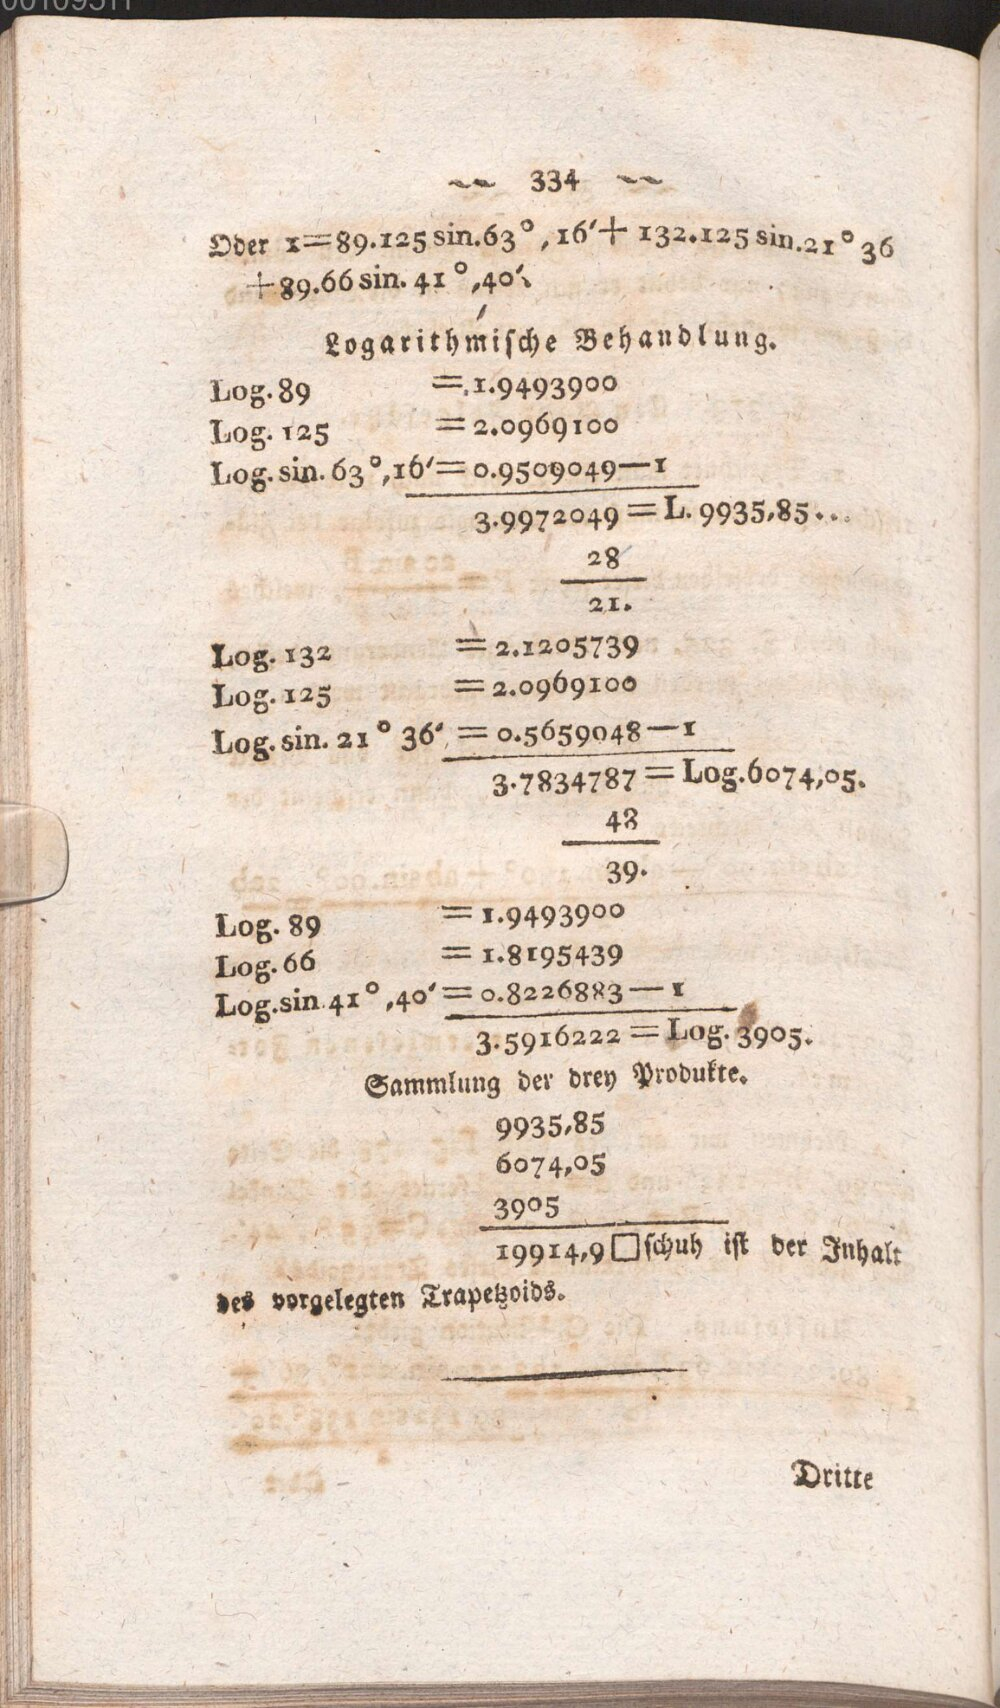 334
Oder 1=89.125 sin.63°,16′+ 132.125 sin.21° 36
+89.66 sin. 41°,40′.
Logarithmische Behandlung.
Log. 89 = 1.9493900
Log. 125 = 2.0969100
Log. sin. 63°,16′= 0.9509049—1
3.9972049 = L. 9935,85...
28
21.
Log. 132 = 2.1205739
Log. 125 = 2.0969100
Log. sin. 21° 36′ = 0.5659048—1
3.7834787 = Log.6074,05.
48
39.
Log. 89 = 1.9493900
Log. 66 = 1.8195439
Log. sin 41°,40′ = 0.8226883—1
3.5916222 = Log. 3905.
Sammlung der drey Produkte.
9935,85
6074,05
3905
19914,9 □schuh ist der Inhalt
des vorgelegten Trapetzoids.
Dritte